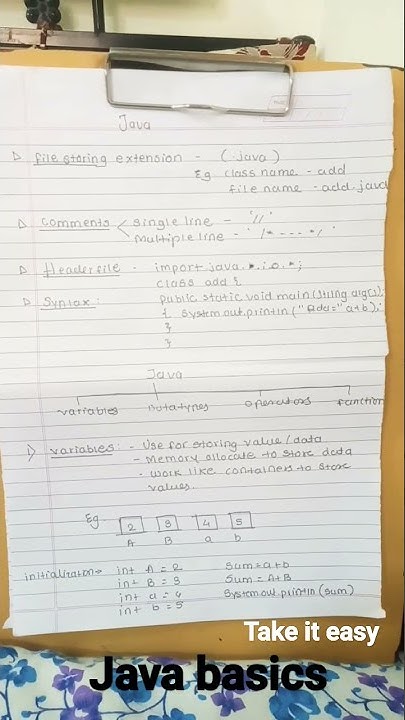 Java
▷ file storing extension - (.java)
Eg class name - add
file name - add.java
▷ comments < single line - '//'
multiple line - ' /* --- */ '
▷ Headerfile - import java.*.i.o.*;
class add {
▷ Syntax: public static void main(string arg[]);
{ system.out.println("Add=" a+b);
}
}
Java
variables Datatypes operators function
▷ variables: - Use for storing value/data
- Memory allocate to store data
- work like containers to store
values.
Eg. 2 3 4 5
A B a b
initialization→ int A = 2 sum=a+b
int B = 3 sum = A+B
int a = 4 System.out.println(sum)
int b = 5
Take it easy
Java basics